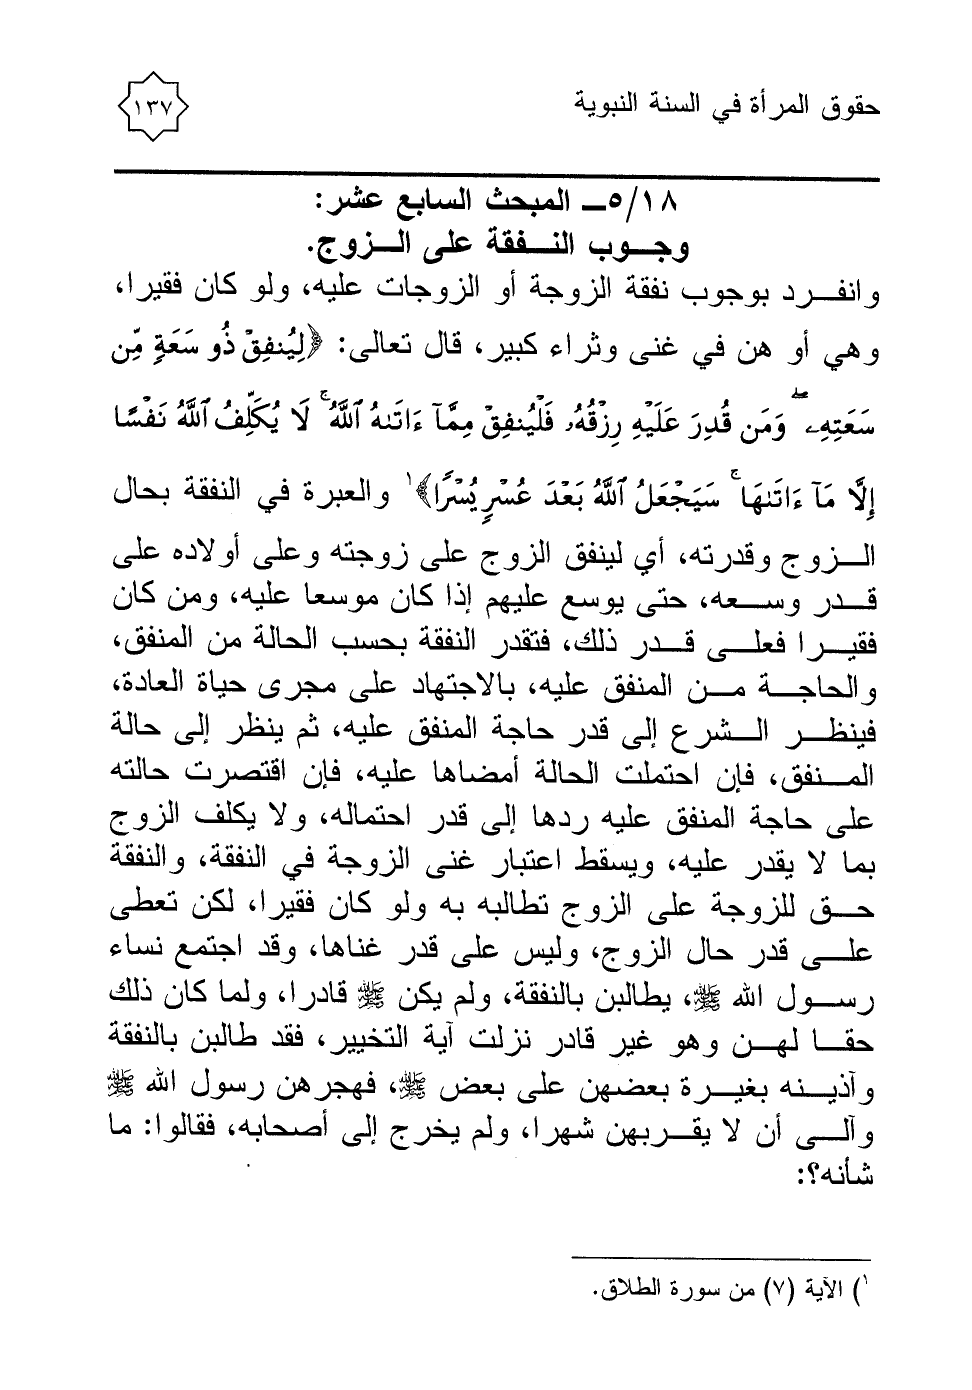 حقوق المرأة في السنة النبوية
١٣٧
٥/١٨ـ المبحث السابع عشر:
وجوب النفقة على الزوج.
وانفرد بوجوب نفقة الزوجة أو الزوجات عليه، ولو كان فقيرا،
وهي أو هن في غنى وثراء كبير، قال تعالى: ﴿لِيُنفِقْ ذُو سَعَةٍ مِّن
سَعَتِهِۦ ۖ وَمَن قُدِرَ عَلَيْهِ رِزْقُهُۥ فَلْيُنفِقْ مِمَّآ ءَاتَىٰهُ ٱللَّهُ ۚ لَا يُكَلِّفُ ٱللَّهُ نَفْسًا
إِلَّا مَآ ءَاتَىٰهَا ۚ سَيَجْعَلُ ٱللَّهُ بَعْدَ عُسْرٍ يُسْرًا﴾١ والعبرة في النفقة بحال
الزوج وقدرته، أي لينفق الزوج على زوجته وعلى أولاده على
قدر وسعه، حتى يوسع عليهم إذا كان موسعا عليه، ومن كان
فقيرا فعلى قدر ذلك، فتقدر النفقة بحسب الحالة من المنفق،
والحاجة من المنفق عليه، بالاجتهاد على مجرى حياة العادة،
فينظر الشرع إلى قدر حاجة المنفق عليه، ثم ينظر إلى حالة
المنفق، فإن احتملت الحالة أمضاها عليه، فإن اقتصرت حالته
على حاجة المنفق عليه ردها إلى قدر احتماله، ولا يكلف الزوج
بما لا يقدر عليه، ويسقط اعتبار غنى الزوجة في النفقة، والنفقة
حق للزوجة على الزوج تطالبه به ولو كان فقيرا، لكن تعطى
على قدر حال الزوج، وليس على قدر غناها، وقد اجتمع نساء
رسول الله ﷺ، يطالبن بالنفقة، ولم يكن ﷺ قادرا، ولما كان ذلك
حقا لهن وهو غير قادر نزلت آية التخيير، فقد طالبن بالنفقة
وآذينه بغيرة بعضهن على بعض ﷺ، فهجرهن رسول الله ﷺ
وآلى أن لا يقربهن شهرا، ولم يخرج إلى أصحابه، فقالوا: ما
شأنه؟:
١) الآية (٧) من سورة الطلاق.